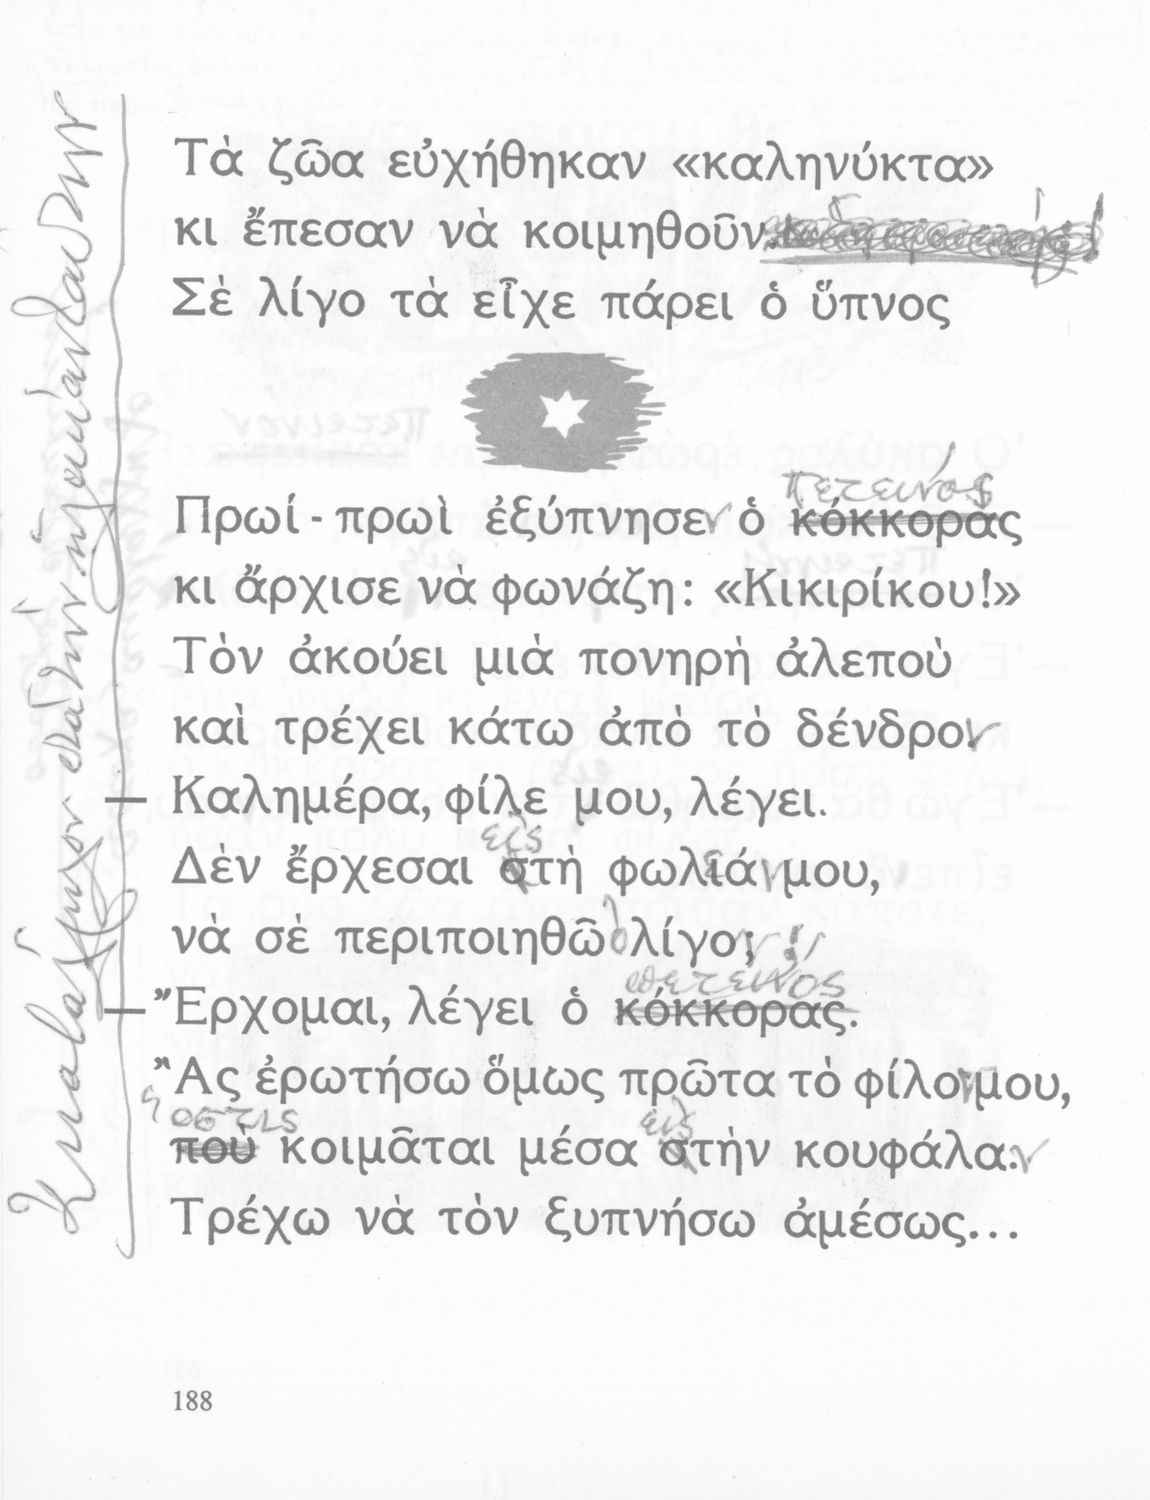 Τὰ ζῶα εὐχήθηκαν «καληνύκτα»
κι ἔπεσαν νὰ κοιμηθοῦν.
Σὲ λίγο τὰ εἶχε πάρει ὁ ὕπνος
πετεινός
Πρωί - πρωὶ ἐξύπνησεν ὁ κόκκορας
κι ἄρχισε νὰ φωνάζη: «Κικιρίκου!»
Τὸν ἀκούει μιὰ πονηρὴ ἀλεποὺ
καὶ τρέχει κάτω ἀπὸ τὸ δένδρον
— Καλημέρα, φίλε μου, λέγει.
εἰς
Δὲν ἔρχεσαι στὴ φωλιάν μου,
νὰ σὲ περιποιηθῶ λίγο;
πετεινός
— Ἔρχομαι, λέγει ὁ κόκκορας.
Ἂς ἐρωτήσω ὅμως πρῶτα τὸ φίλον μου,
ὅστις εἰς
ποὺ κοιμᾶται μέσα στὴν κουφάλα.
Τρέχω νὰ τὸν ξυπνήσω ἀμέσως...
188